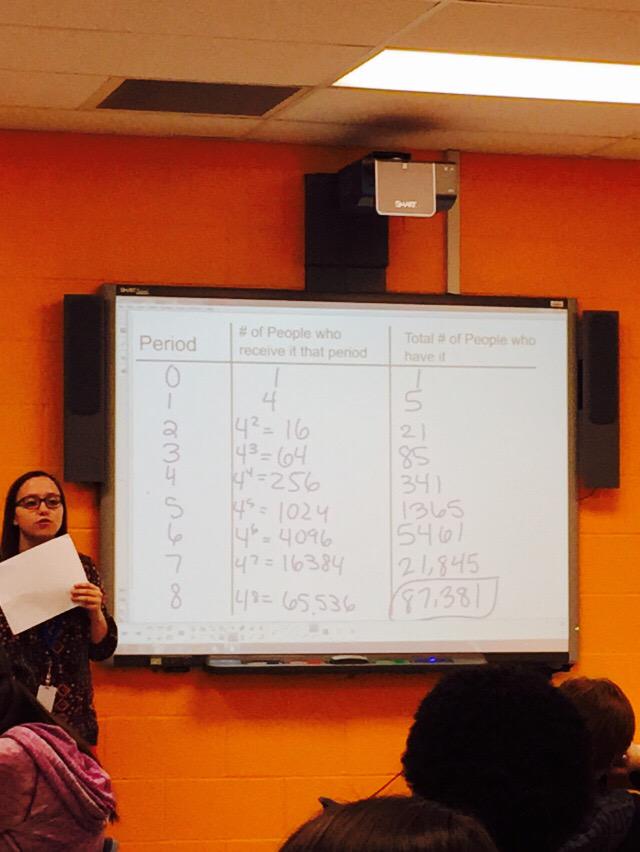 SMART
SMART
Period # of People who receive it that period Total # of People who have it
0 1 1
1 4 5
2 4² = 16 21
3 4³ = 64 85
4 4⁴ = 256 341
5 4⁵ = 1024 1365
6 4⁶ = 4096 5461
7 4⁷ = 16384 21,845
8 4⁸ = 65,536 87,381